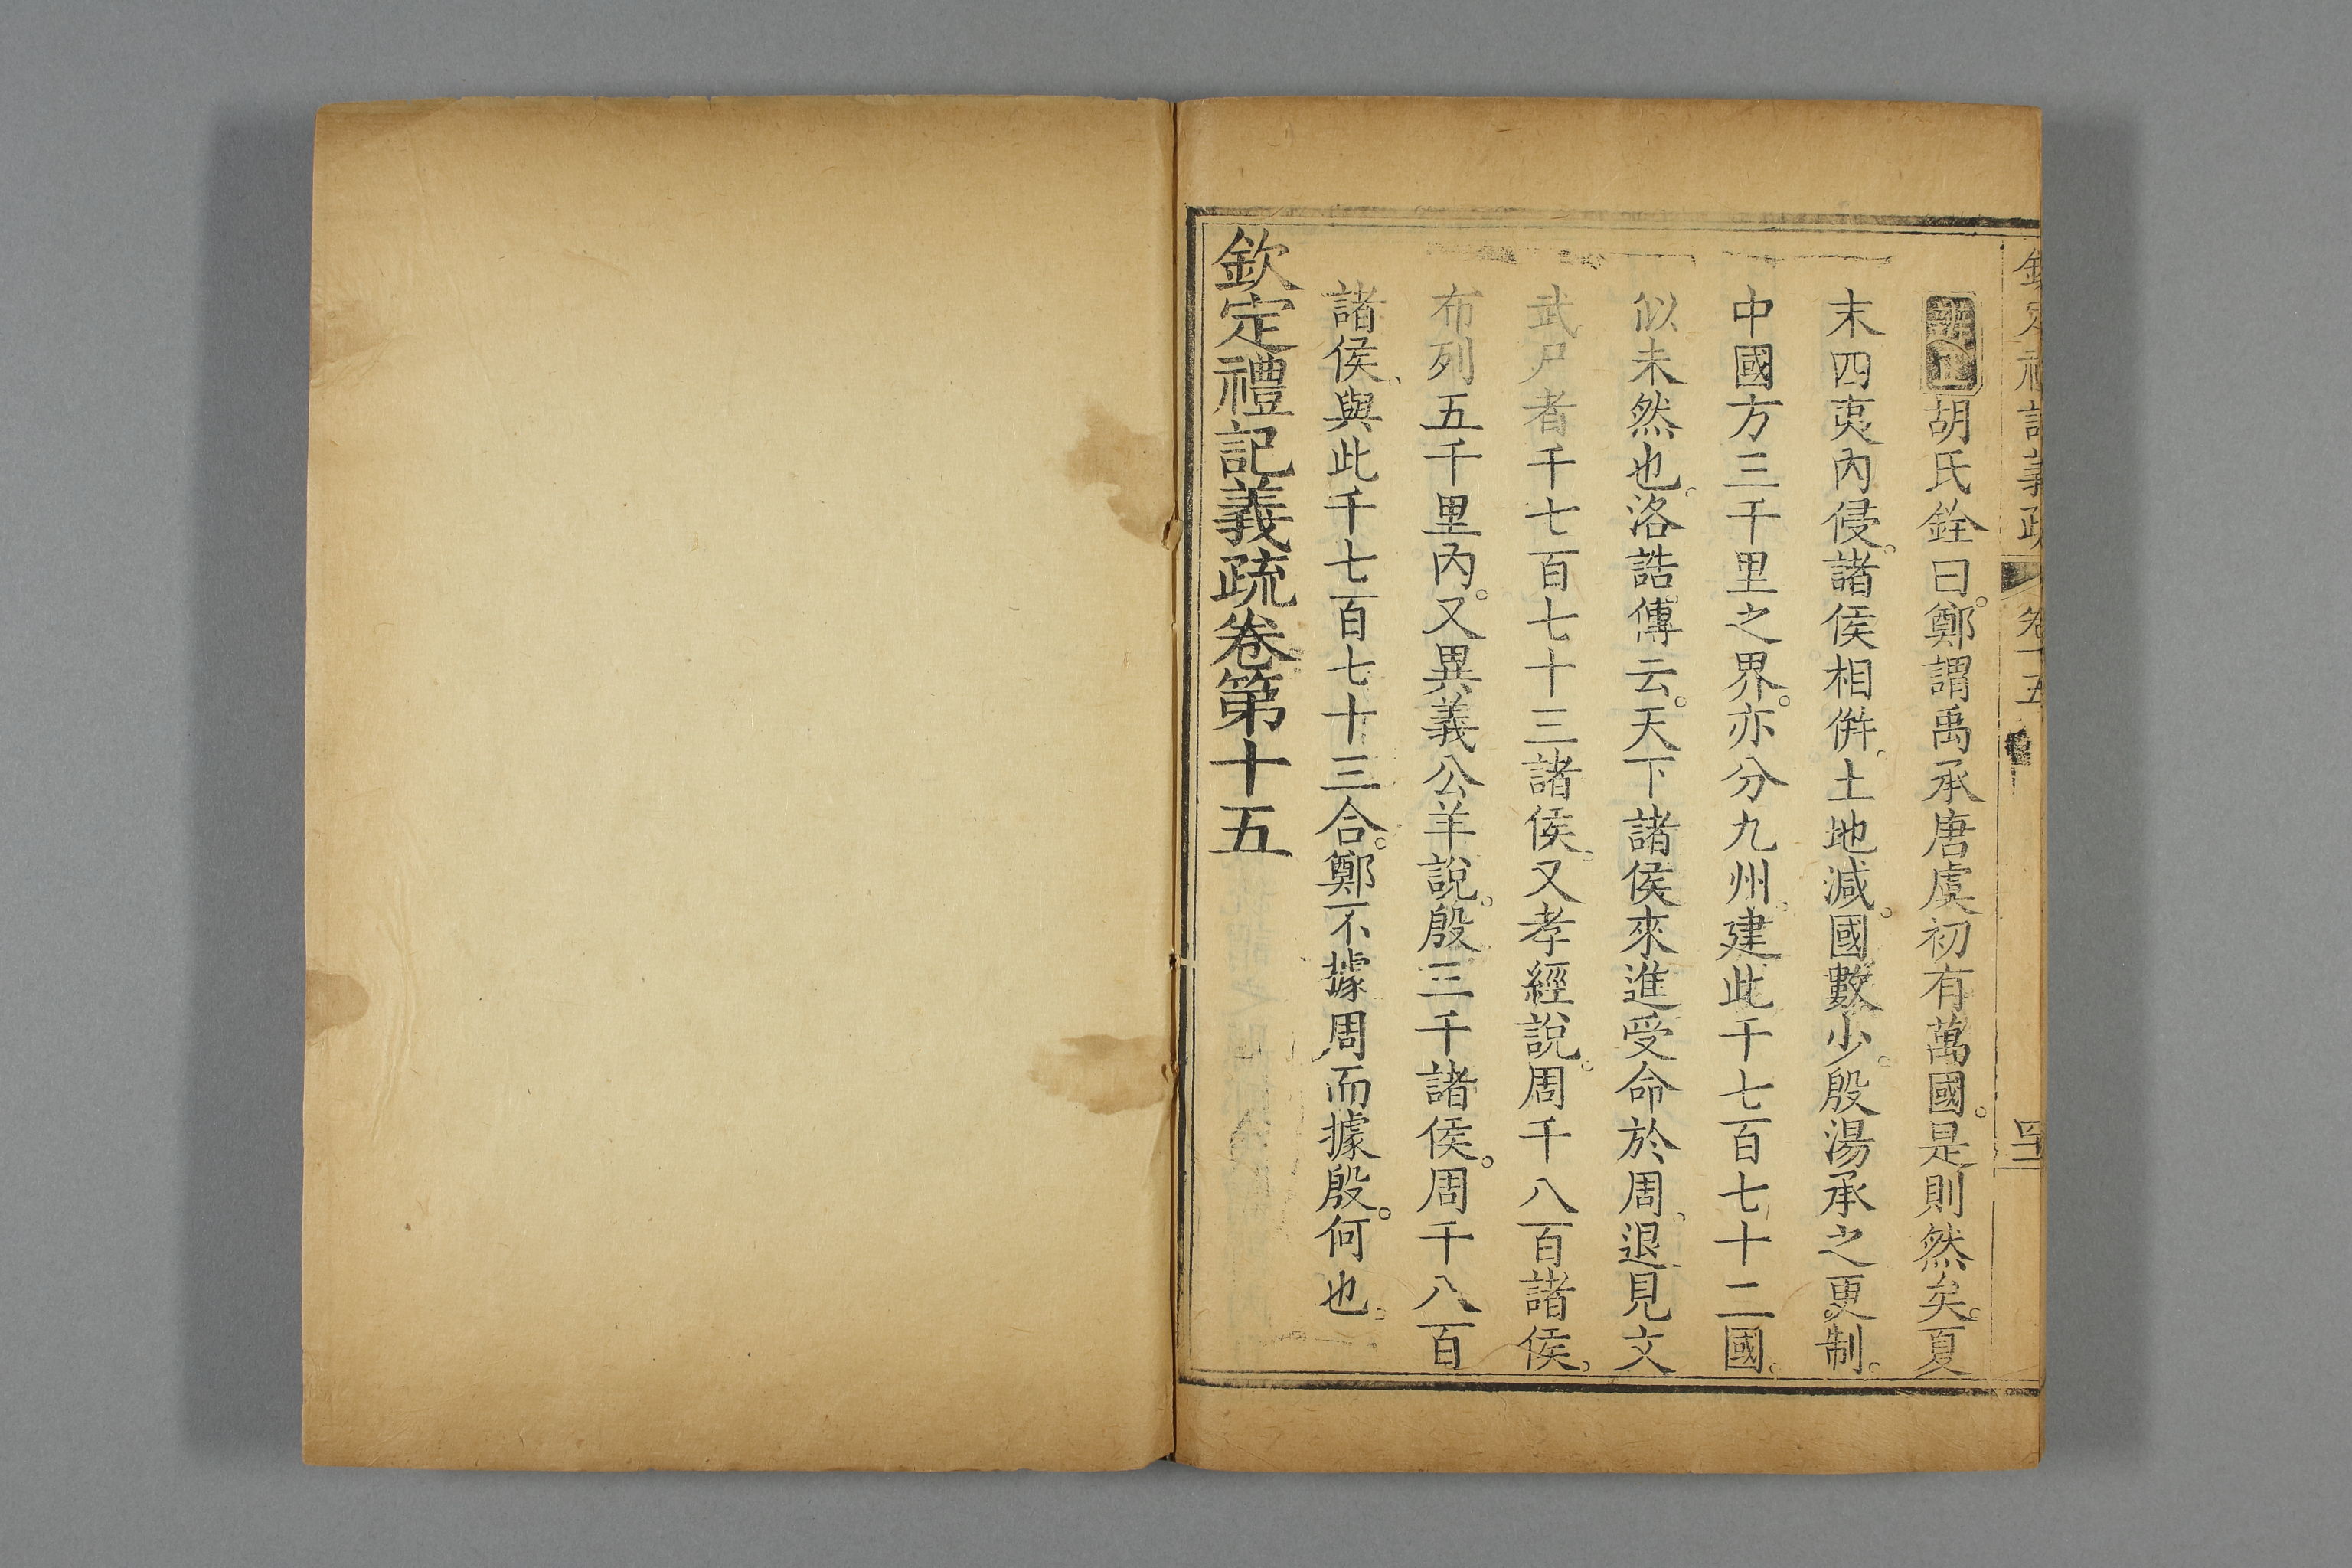 欽定禮記義疏 卷十五
辨正胡氏銓曰鄭謂禹承唐虞初有萬國是則然矣夏
末四夷內侵諸侯相倂土地減國數少殷湯承之更制
中國方三千里之界亦分九州建此千七百七十二國
似未然也洛誥傳云天下諸侯來進受命於周退見文
武尸者千七百七十三諸侯又孝經說周千八百諸侯
布列五千里內又異義公羊說殷三千諸侯周千八百
諸侯與此千七百七十三合鄭不據周而據殷何也
欽定禮記義疏卷第十五